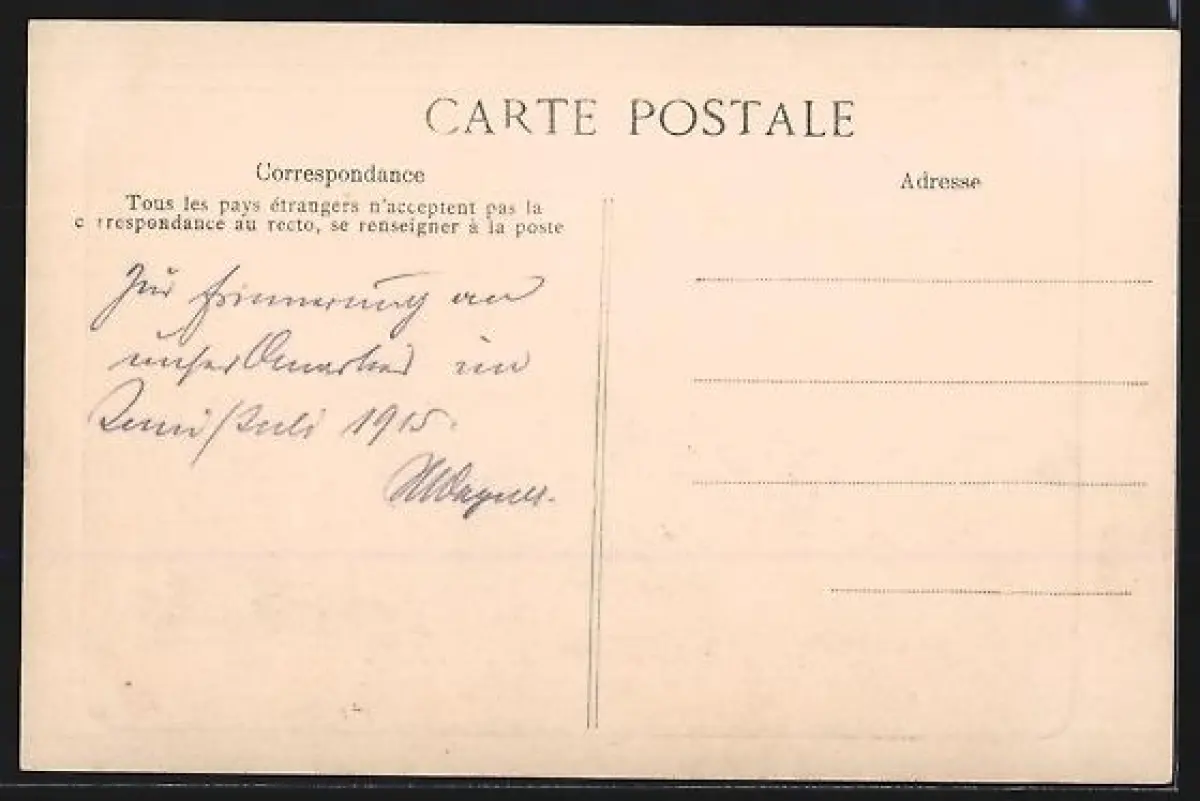 CARTE POSTALE
Correspondance
Tous les pays étrangers n'acceptent pas la
c rrespondance au recto, se renseigner à la poste
Adresse
Zur Erinnerung an
unser im
Juni/Juli 1915.
Wagner.